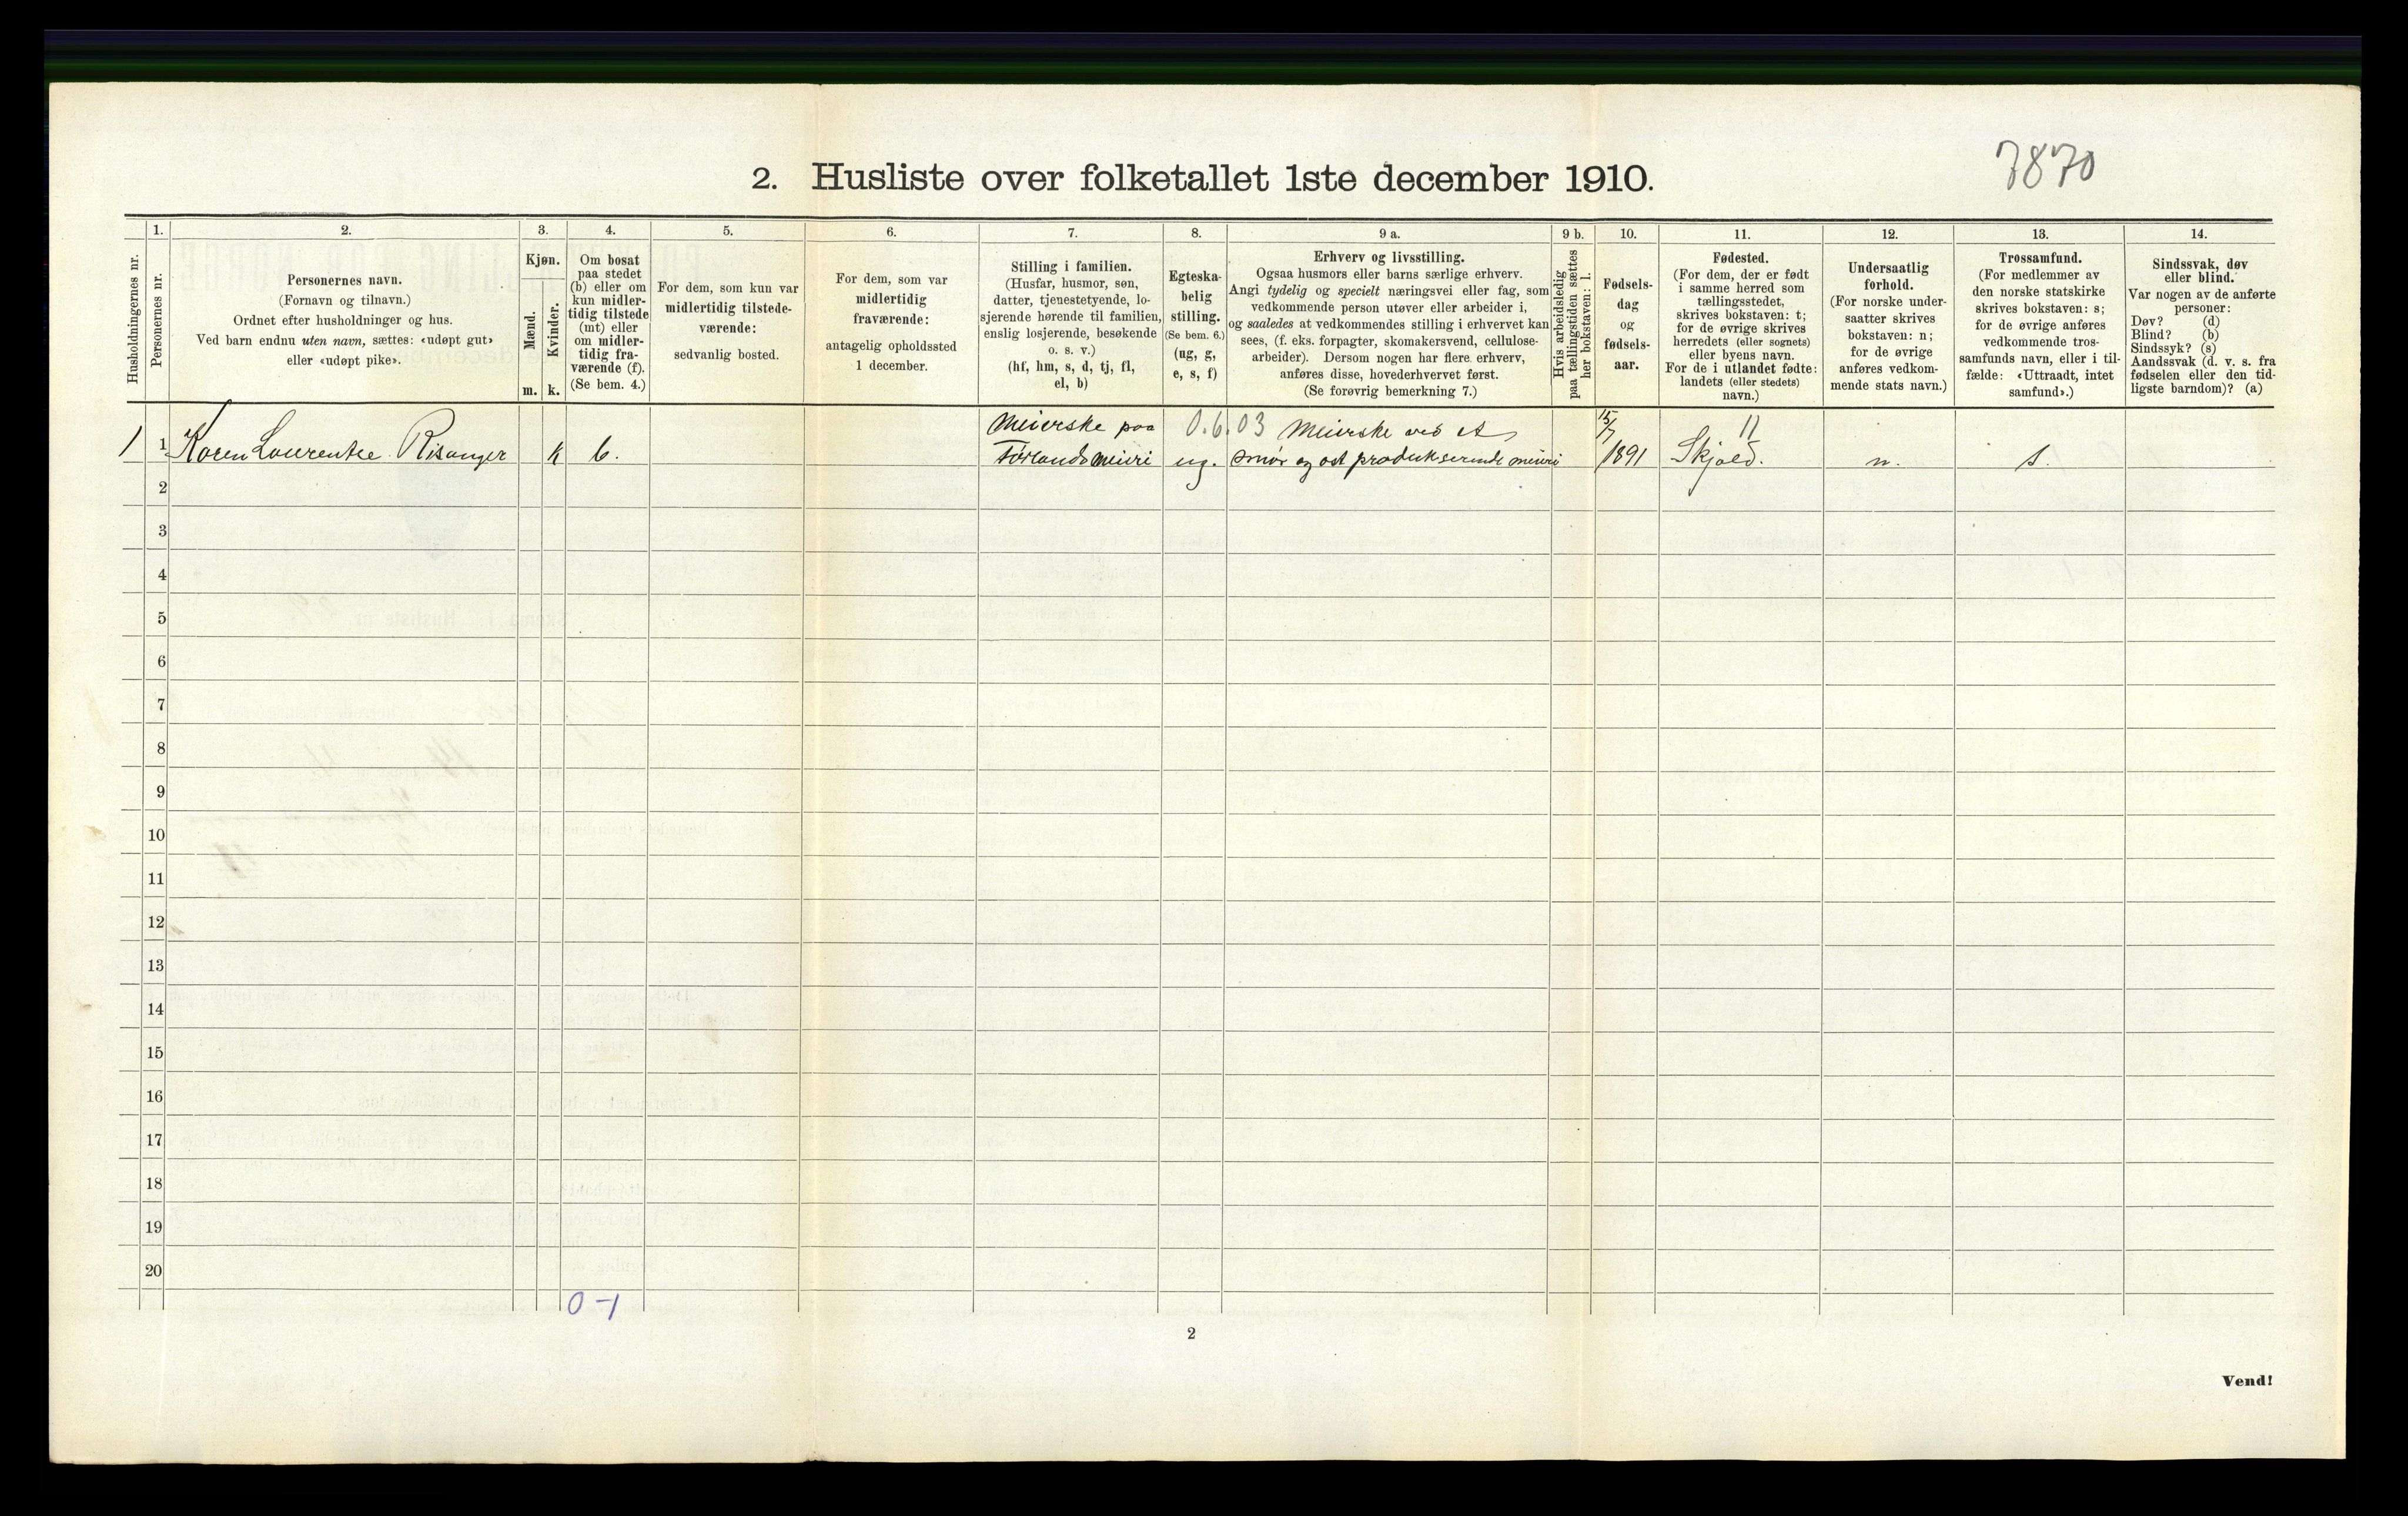 2. Husliste over folketallet 1ste december 1910.
7870
Husholdningernes nr.
1.
Personernes nr.
2.
Personernes navn.
(Fornavn og tilnavn.)
Ordnet efter husholdninger og hus.
Ved barn endnu uten navn, sættes: «udøpt gut»
eller «udøpt pike».
3.
Kjøn.
Mænd.
Kvinder.
m. k.
4.
Om bosat
paa stedet
(b) eller om
kun midler-
tidig tilstede
(mt) eller
om midler-
tidig fra-
værende (f).
(Se bem. 4.)
5.
For dem, som kun var
midlertidig tilstede-
værende:
sedvanlig bosted.
6.
For dem, som var
midlertidig
fraværende:
antagelig opholdssted
1 december.
7.
Stilling i familien.
(Husfar, husmor, søn,
datter, tjenestetyende, lo-
sjerende hørende til familien,
enslig losjerende, besøkende
o. s. v.)
(hf, hm, s, d, tj, fl,
el, b)
8.
Egteska-
belig
stilling.
(Se bem. 6.)
(ug, g,
e, s, f)
9 a.
Erhverv og livsstilling.
Ogsaa husmors eller barns særlige erhverv.
Angi tydelig og specielt næringsvei eller fag, som
vedkommende person utøver eller arbeider i,
og saaledes at vedkommendes stilling i erhvervet kan
sees, (f. eks. forpagter, skomakersvend, cellulose-
arbeider). Dersom nogen har flere erhverv,
anføres disse, hovederhvervet først.
(Se forøvrig bemerkning 7.)
9 b.
Hvis arbeidsledig
paa tællingstiden sættes
her bokstaven: l.
10.
Fødsels-
dag
og
fødsels-
aar.
11.
Fødested.
(For dem, der er født
i samme herred som
tællingsstedet,
skrives bokstaven: t;
for de øvrige skrives
herredets (eller sognets)
eller byens navn.
For de i utlandet fødte:
landets (eller stedets)
navn.)
12.
Undersaatlig
forhold.
(For norske under-
saatter skrives
bokstaven: n;
for de øvrige
anføres vedkom-
mende stats navn.)
13.
Trossamfund.
(For medlemmer av
den norske statskirke
skrives bokstaven: s;
for de øvrige anføres
vedkommende tros-
samfunds navn, eller i til-
fælde: «Uttraadt, intet
samfund».)
14.
Sindssvak, døv
eller blind.
Var nogen av de anførte
personer:
Døv? (d)
Blind? (b)
Sindssyk? (s)
Aandssvak (d. v. s. fra
fødselen eller den tid-
ligste barndom)? (a)
Meierske paa 0.6.03 Meierske ved et 15/7 11
1 1 Karen Laurentse Risanger k b. Førlands meieri ug. smør og ost produkserende meieri 1891 Skjold. n. s.
2
3
4
5
6
7
8
9
10
11
12
13
14
15
16
17
18
19
20
0-1
2
Vend!